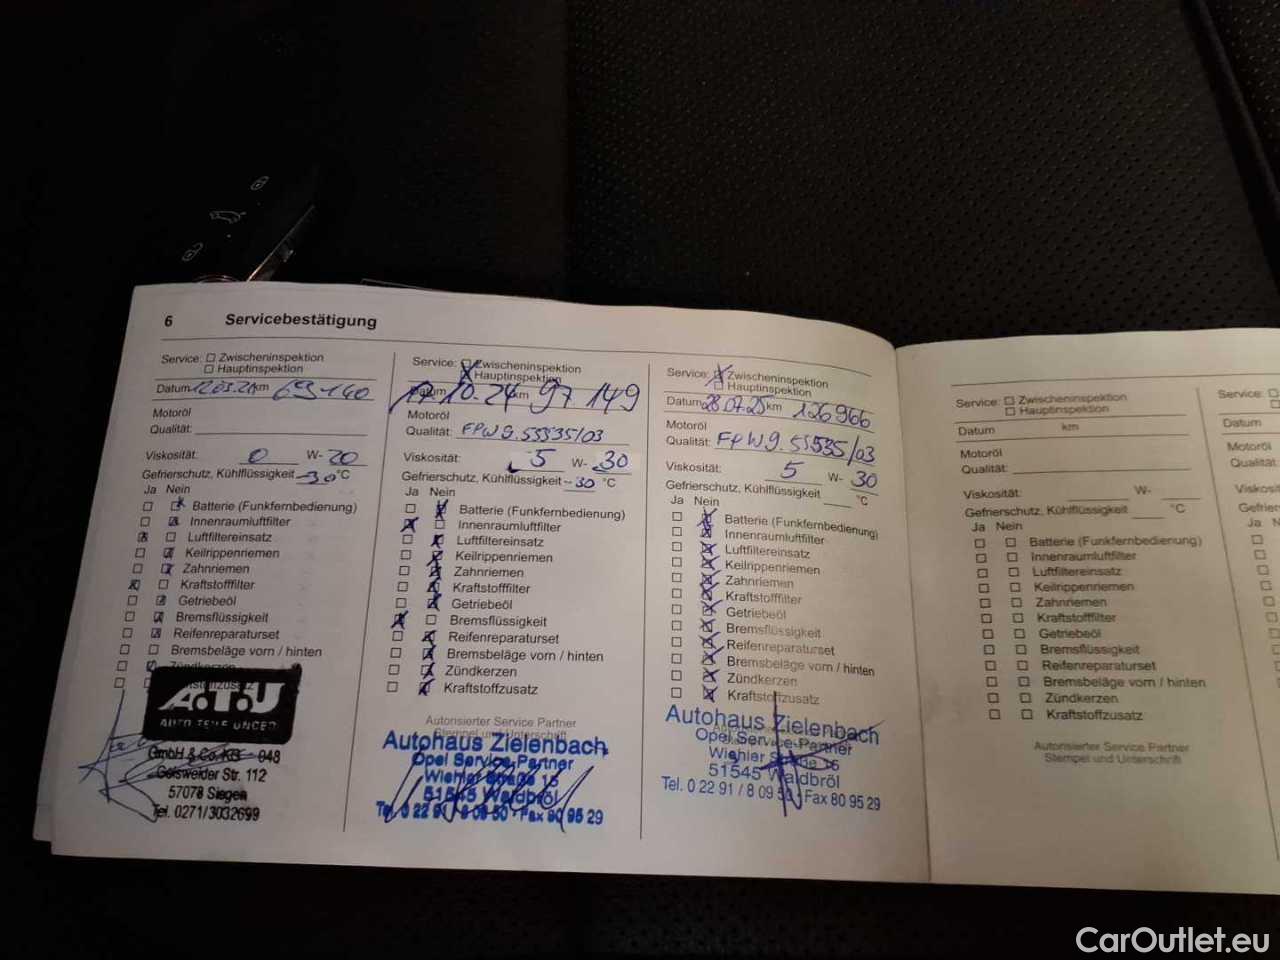 6 Servicebestätigung
Service: Zwischeninspektion
Hauptinspektion
Datum 12.03.21 km 69.140
Motoröl
Qualität:
Viskosität: 0 W- 20
Gefrierschutz, Kühlflüssigkeit -30 °C
Ja Nein
Batterie (Funkfernbedienung)
Innenraumluftfilter
Luftfiltereinsatz
Keilrippenriemen
Zahnriemen
Kraftstofffilter
Getriebeöl
Bremsflüssigkeit
Reifenreparaturset
Bremsbeläge vorn / hinten
Zündkerzen
A.T.U
AUTO TEILE UNGER
GmbH & Co. KG - 048
Geisweider Str. 112
57078 Siegen
Tel. 0271/3032699
Service: Zwischeninspektion
Hauptinspektion
Datum 17.10.24 km 97 149
Motoröl
Qualität: FPW9.55535/03
Viskosität: 5 W- 30
Gefrierschutz, Kühlflüssigkeit -30 °C
Ja Nein
Batterie (Funkfernbedienung)
Innenraumluftfilter
Luftfiltereinsatz
Keilrippenriemen
Zahnriemen
Kraftstofffilter
Getriebeöl
Bremsflüssigkeit
Reifenreparaturset
Bremsbeläge vorn / hinten
Zündkerzen
Kraftstoffzusatz
Autorisierter Service Partner
Stempel und Unterschrift
Autohaus Zielenbach
Opel Service-Partner
Wiehler Straße 15
51545 Waldbröl
Tel. 0 22 91 / 8 09 50 · Fax 80 95 29
Service: Zwischeninspektion
Hauptinspektion
Datum 28.07.25 km 126 966
Motoröl
Qualität: FPW9.55535/03
Viskosität: 5 W- 30
Gefrierschutz, Kühlflüssigkeit °C
Ja Nein
Batterie (Funkfernbedienung)
Innenraumluftfilter
Luftfiltereinsatz
Keilrippenriemen
Zahnriemen
Kraftstofffilter
Getriebeöl
Bremsflüssigkeit
Reifenreparaturset
Bremsbeläge vorn / hinten
Zündkerzen
Kraftstoffzusatz
Autohaus Zielenbach
Opel Service-Partner
Wiehler Straße 15
51545 Waldbröl
Tel. 0 22 91 / 8 09 50 · Fax 80 95 29
Service: Zwischeninspektion
Hauptinspektion
Datum km
Motoröl
Qualität:
Viskosität: W-
Gefrierschutz, Kühlflüssigkeit °C
Ja Nein
Batterie (Funkfernbedienung)
Innenraumluftfilter
Luftfiltereinsatz
Keilrippenriemen
Zahnriemen
Kraftstofffilter
Getriebeöl
Bremsflüssigkeit
Reifenreparaturset
Bremsbeläge vorn / hinten
Zündkerzen
Kraftstoffzusatz
Autorisierter Service Partner
Stempel und Unterschrift
Service:
Datum
Motoröl
CarOutlet.eu